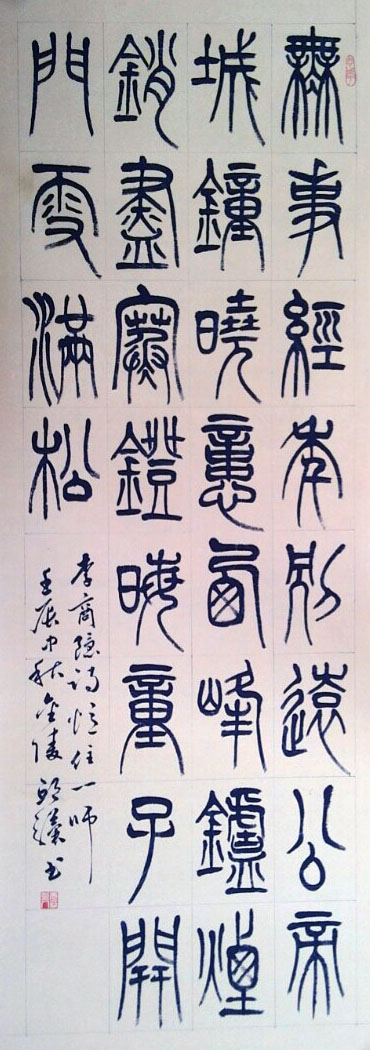 無事經年别遠公帝
城鐘曉憶西峰鑪煙
銷盡寒鐙晦童子開
門雪滿松
李商隱詩憶住一师
壬辰中秋金陵书